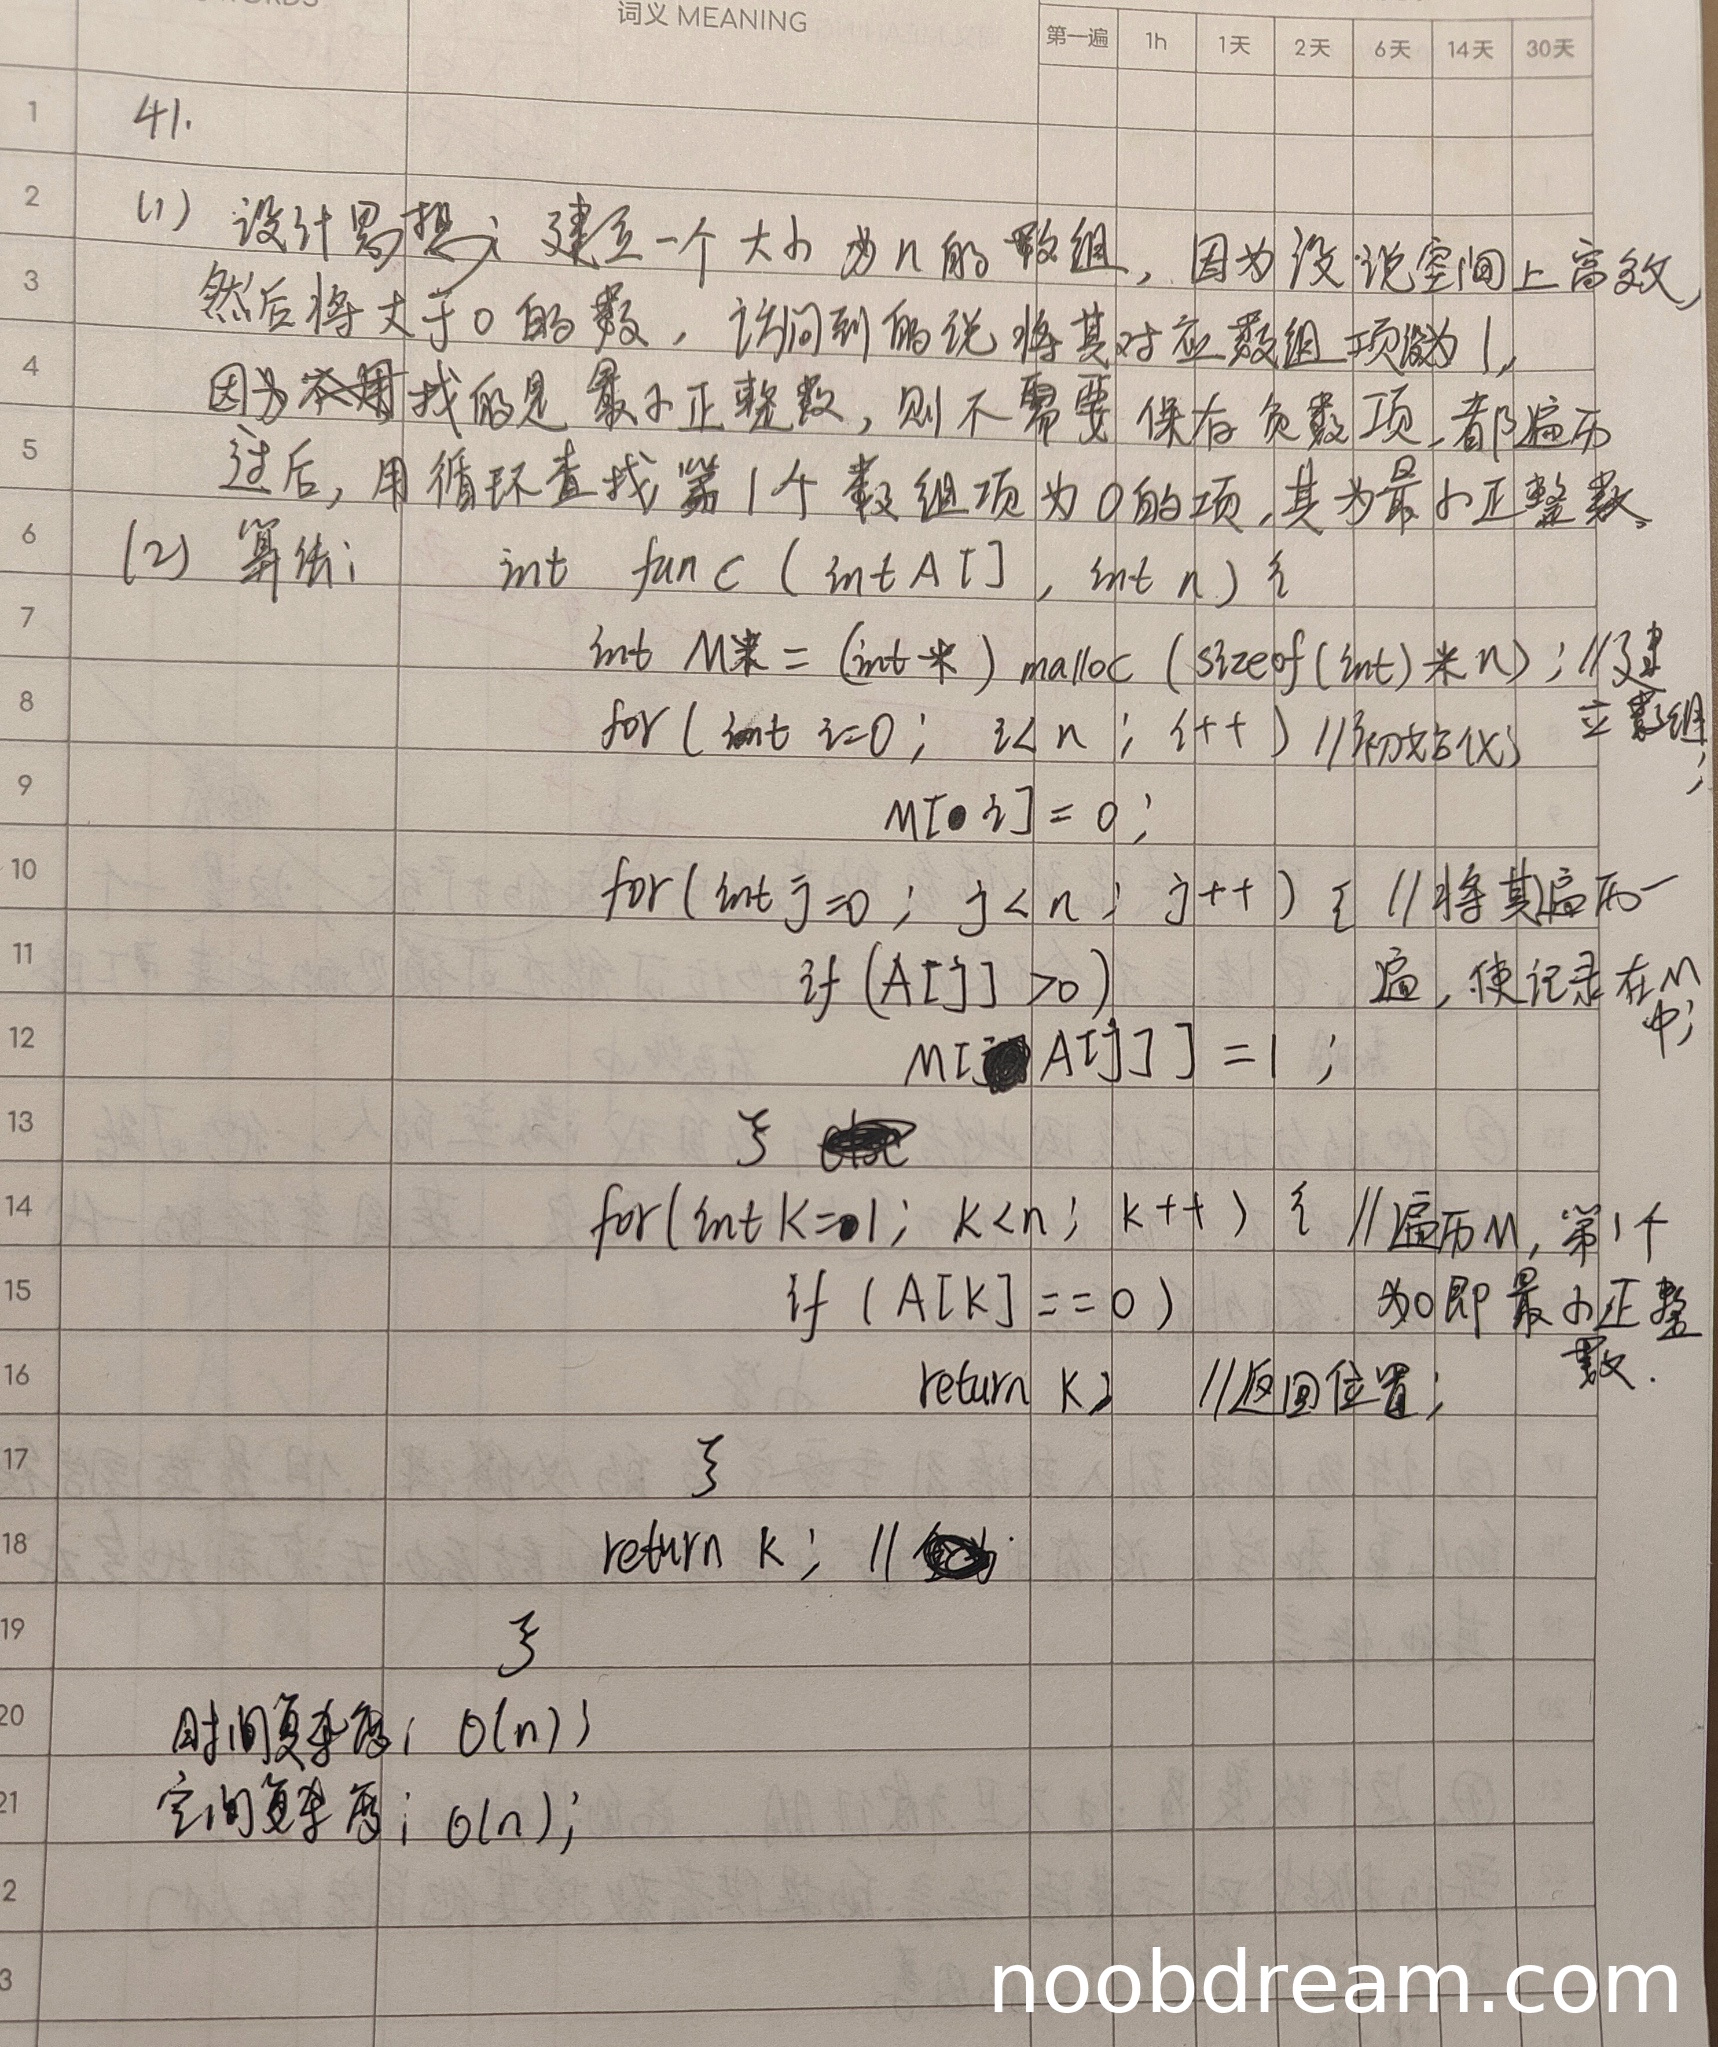 词义 MEANING
第一遍 1h 1天 2天 6天 14天 30天
1 41.
2 (1) 设计思想: 建立一个大小为n的数组, 因为没说空间上高效,
3 然后将大于0的数, 访问到的说将其对应数组项设为1,
4 因为找的是最小正整数, 则不需要保存负数项, 都遍历
5 过后, 用循环查找第1个数组项为0的项, 其为最小正整数.
6 (2) 算法: int func (int A[], int n) {
7 int M* = (int *) malloc (sizeof(int) * n); //建
立数组;
8 for (int i=0; i<n; i++) //初始化;
9 M[i] = 0;
10 for (int j=0; j<n; j++) { //将其遍历一
11 if (A[j] >0) 遍, 使记录在M
中;
12 M[A[j]] = 1;
13 }
14 for (int k=1; k<n; k++) { //遍历M, 第1个
15 if (A[k] == 0) 为0即最小正整
数.
16 return k; //返回位置;
17 }
18 return k; //
19 }
20 时间复杂度: O(n);
21 空间复杂度: O(n);
2
3
noobdream.com